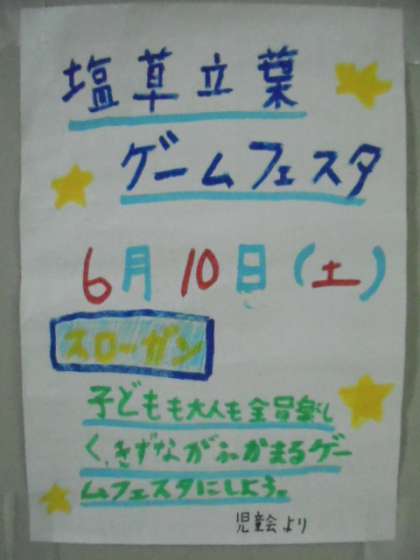 塩草立葉
ゲームフェスタ
6月10日(土)
スローガン
子どもも大人も全員楽し
く、きずながふかまるゲー
ムフェスタにしよう。
児童会より